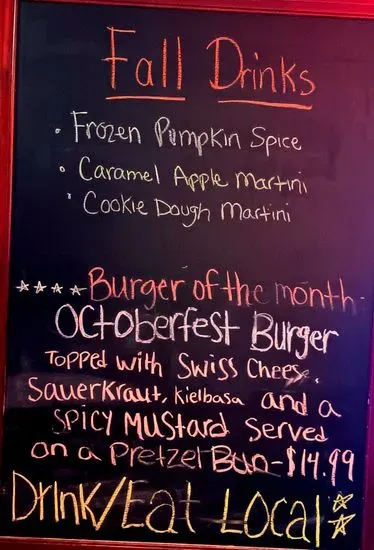 Fall Drinks
• Frozen Pumpkin Spice
• Caramel Apple Martini
• Cookie Dough Martini
☆☆☆☆ Burger of the month-
Octoberfest Burger
Topped with Swiss Cheese,
Sauerkraut, Kielbasa and a
Spicy Mustard Served
on a Pretzel Bun-$14.99
Drink/Eat Local ☆☆